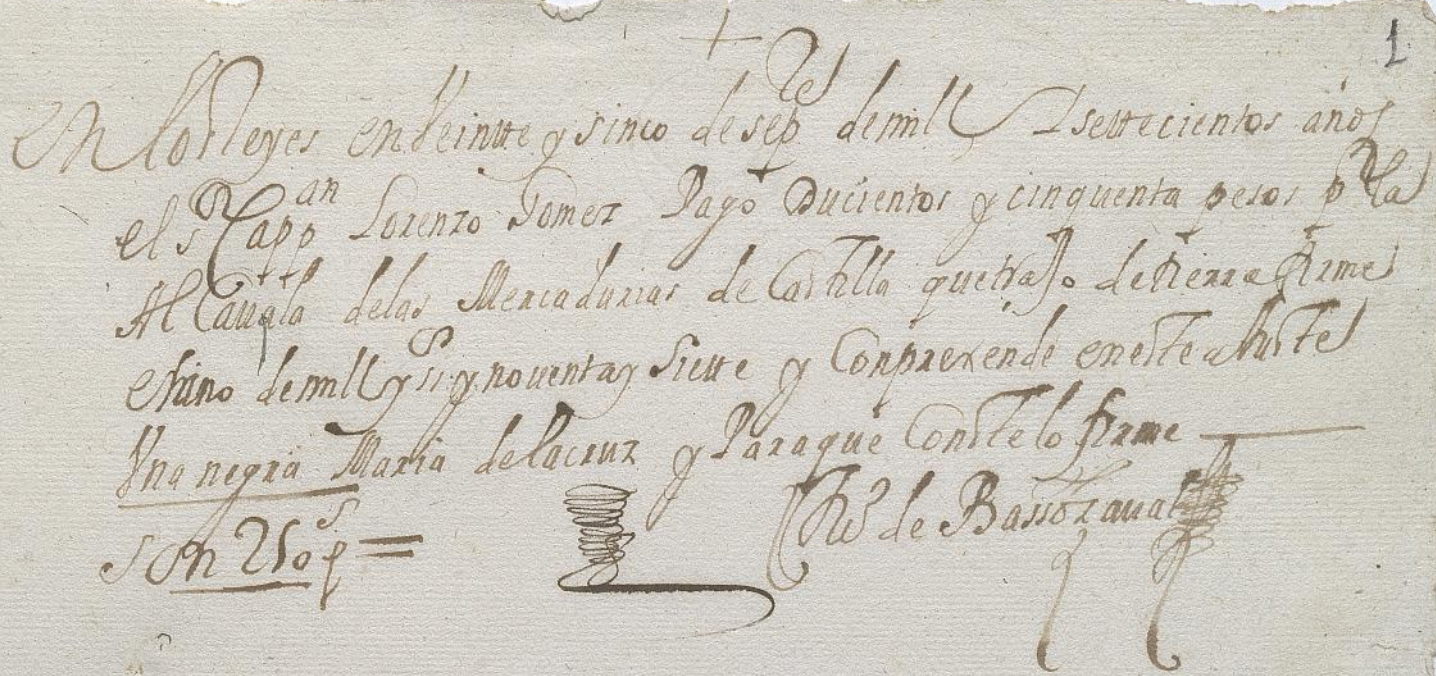 1
+
En los Reyes en Veintte y sinco de sepre de mill y settecientos años
el sr Cappan Lorenzo Gomez Pagó Ducientos y cinquenta pesos pr la
Al Cauala de las Mercadurias de Castilla que trajo de tierra firme
el año de mill y ss y nouenta y Siette y Conprexende en este aJuste
Vna negra Maria de la cruz y Para que Conste lo firme
son 250 ps =
de Bassozaual